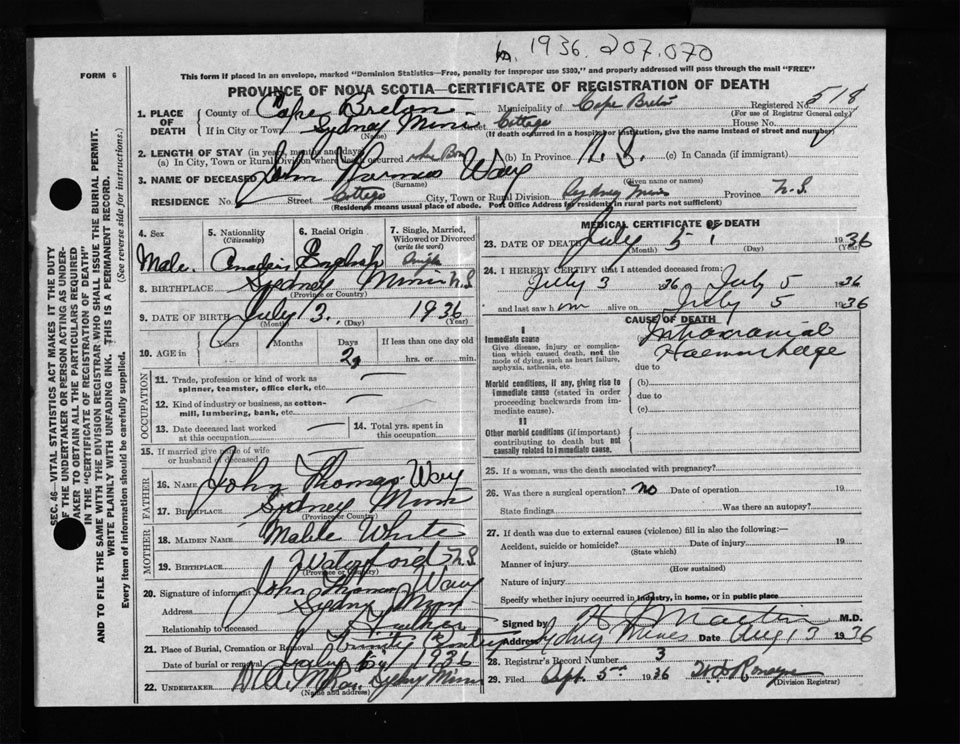 1936. 207.070
FORM 6
This form if placed in an envelope, marked "Dominion Statistics—Free, penalty for improper use $300," and properly addressed will pass through the mail "FREE"
PROVINCE OF NOVA SCOTIA—CERTIFICATE OF REGISTRATION OF DEATH
1. PLACE OF DEATH
County of Cape Breton Municipality of Cape Breton Registered No. 518
(For use of Registrar General only)
If in City or Town Sydney Mines Street Cottage House No.
(Name) (If death occurred in a hospital or institution, give the name instead of street and number)
2. LENGTH OF STAY (in years, months and days)
(a) In City, Town or Rural Division where death occurred (b) In Province (c) In Canada (if immigrant)
3. NAME OF DECEASED John Way
(Surname) (Given name or names)
RESIDENCE No. Street Cottage City, Town or Rural Division Sydney Mines Province N.S.
(Residence means usual place of abode. Post Office Address for residents in rural parts not sufficient)
SEC. 46—VITAL STATISTICS ACT MAKES IT THE DUTY
OF THE UNDERTAKER OR PERSON ACTING AS UNDER-
TAKER TO OBTAIN ALL THE PARTICULARS REQUIRED
IN THE "CERTIFICATE OF REGISTRATION OF DEATH"
AND TO FILE THE SAME WITH THE DIVISION REGISTRAR WHO SHALL ISSUE THE BURIAL PERMIT.
WRITE PLAINLY WITH UNFADING INK. THIS IS A PERMANENT RECORD.
Every item of information should be carefully supplied. (See reverse side for instructions.)
4. Sex 5. Nationality (Citizenship) 6. Racial Origin 7. Single, Married, Widowed or Divorced (write the word)
Male. English Single
8. BIRTHPLACE Sydney Mines N.S.
(Province or Country)
9. DATE OF BIRTH July 3. 1936
(Month) (Day) (Year)
10. AGE in Years Months Days If less than one day old
2 hrs. or min.
OCCUPATION
11. Trade, profession or kind of work as spinner, teamster, office clerk, etc. —
12. Kind of industry or business, as cotton-mill, lumbering, bank, etc. —
13. Date deceased last worked at this occupation — 14. Total yrs. spent in this occupation.
15. If married give name of wife or husband of deceased
FATHER
16. NAME John Thomas Way
17. BIRTHPLACE Sydney Mines
(Province or Country)
MOTHER
18. MAIDEN NAME Mable White
19. BIRTHPLACE Waterford N.S.
(Province or Country)
20. Signature of informant John Thomas Way
Address Sydney Mines
Relationship to deceased Father
21. Place of Burial, Cremation or Removal Trinity
Date of burial or removal July 1936
22. UNDERTAKER Sydney Mines
(Name and address)
MEDICAL CERTIFICATE OF DEATH
23. DATE OF DEATH July 5, 1936
(Month) (Day) (Year)
24. I HEREBY CERTIFY that I attended deceased from:
July 3 36 July 5 1936
and last saw him alive on July 5 1936
CAUSE OF DEATH
I
Immediate cause
Intracranial
Haemorrhage
Give disease, injury or complication which caused death, not the mode of dying, such as heart failure, asphyxia, asthenia, etc.
due to
Morbid conditions, if any, giving rise to immediate cause (stated in order proceeding backwards from immediate cause).
(b)
due to
(c)
II
Other morbid conditions (if important) contributing to death but not causally related to immediate cause.
25. If a woman, was the death associated with pregnancy?
26. Was there a surgical operation? no Date of operation 19
State findings Was there an autopsy?
27. If death was due to external causes (violence) fill in also the following:—
Accident, suicide or homicide? Date of injury 19
(State which)
Manner of injury
(How sustained)
Nature of injury
Specify whether injury occurred in industry, in home, or in public place
Signed by Martin M.D.
Address Sydney Mines Date Aug 13 1936
28. Registrar's Record Number 3
29. Filed Sept. 5th 1936
(Division Registrar)